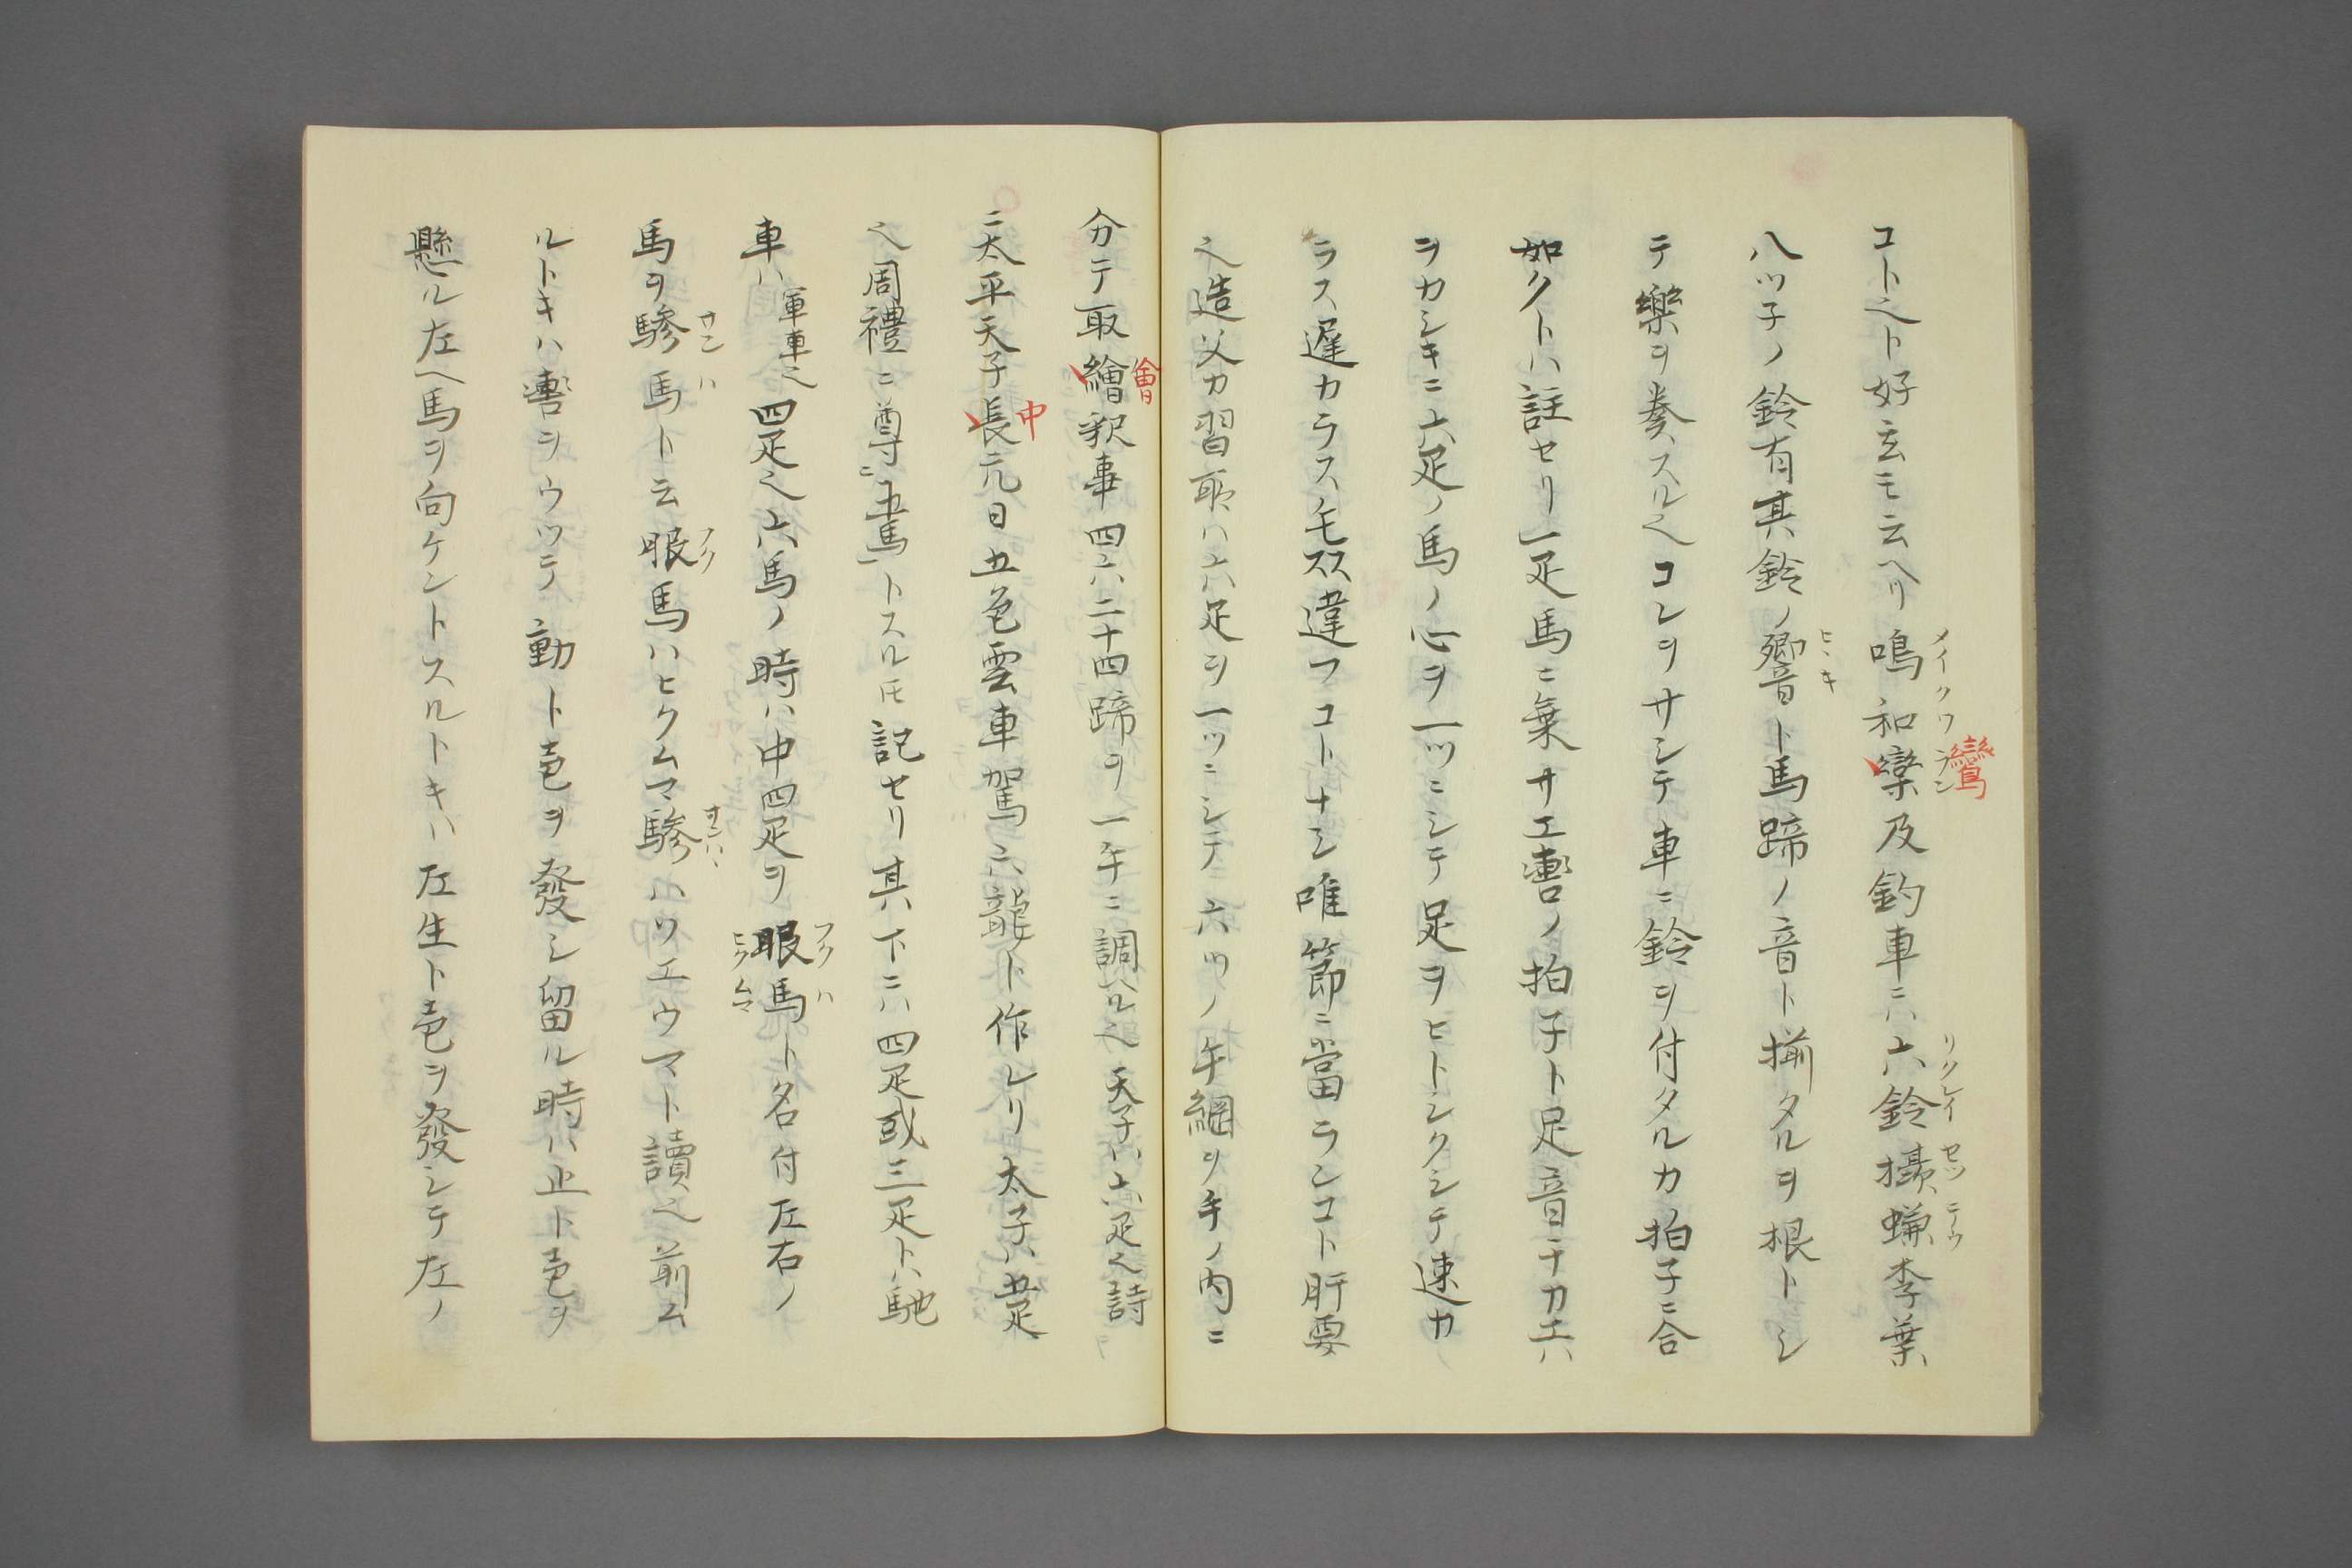 コト之ト好玄モ云ヘリ鳴和欒及釣車ニハ六鈴攝蠊李葉
メイクワラン
鸞
リクレイ
八ツ子ノ鈴有其鈴ノ響ト馬蹄ノ音ト揃タルヲ根トシ
ヒヽキ
テ樂ヲ奏スル之コレヲサシテ車ニ鈴ヲ付タルカ拍子ニ合
如クトハ註セリ一疋馬ニ乗サエ轡ノ拍子ト足音ナカエハ
ヲカシキニ六疋ノ馬ノ心ヲ一ツニシテ足ヲヒトシクシテ速カ
ラス遅カラス毛スス違フコトナシ唯節ニ當ランコト肝要
之造父カ習取ハ六足ヲ一ツニシテ六ツノ手綱ヲ手ノ内ニ
分テ取繪釈事四六二十四蹄ヲ一手ニ調ハル之天子ハ六疋之詩
會
ニ太平天子長元日五色雲車駕六龍ト作レリ太子ハ五疋
中
之周禮ニ尊ニ駕トスル圧記セリ其下ニハ四疋或三疋トハ馳
車ハ軍車之四疋之六馬ノ時ハ中四疋ヲ服馬ト名付左右ノ
フクハ
ヒクムマ
馬ヲ驂馬ト云服馬ハヒクムマ驂ハソエウマト讀之前ム
サンハ
フク
サンハ
ルトキハ轡ヲウツテ動ト壱ヲ發シ留ル時ハ止ト壱ヲ
懸ル左ヘ馬ヲ向ケントスルトキハ左生ト壱ヲ發シテ左ノ